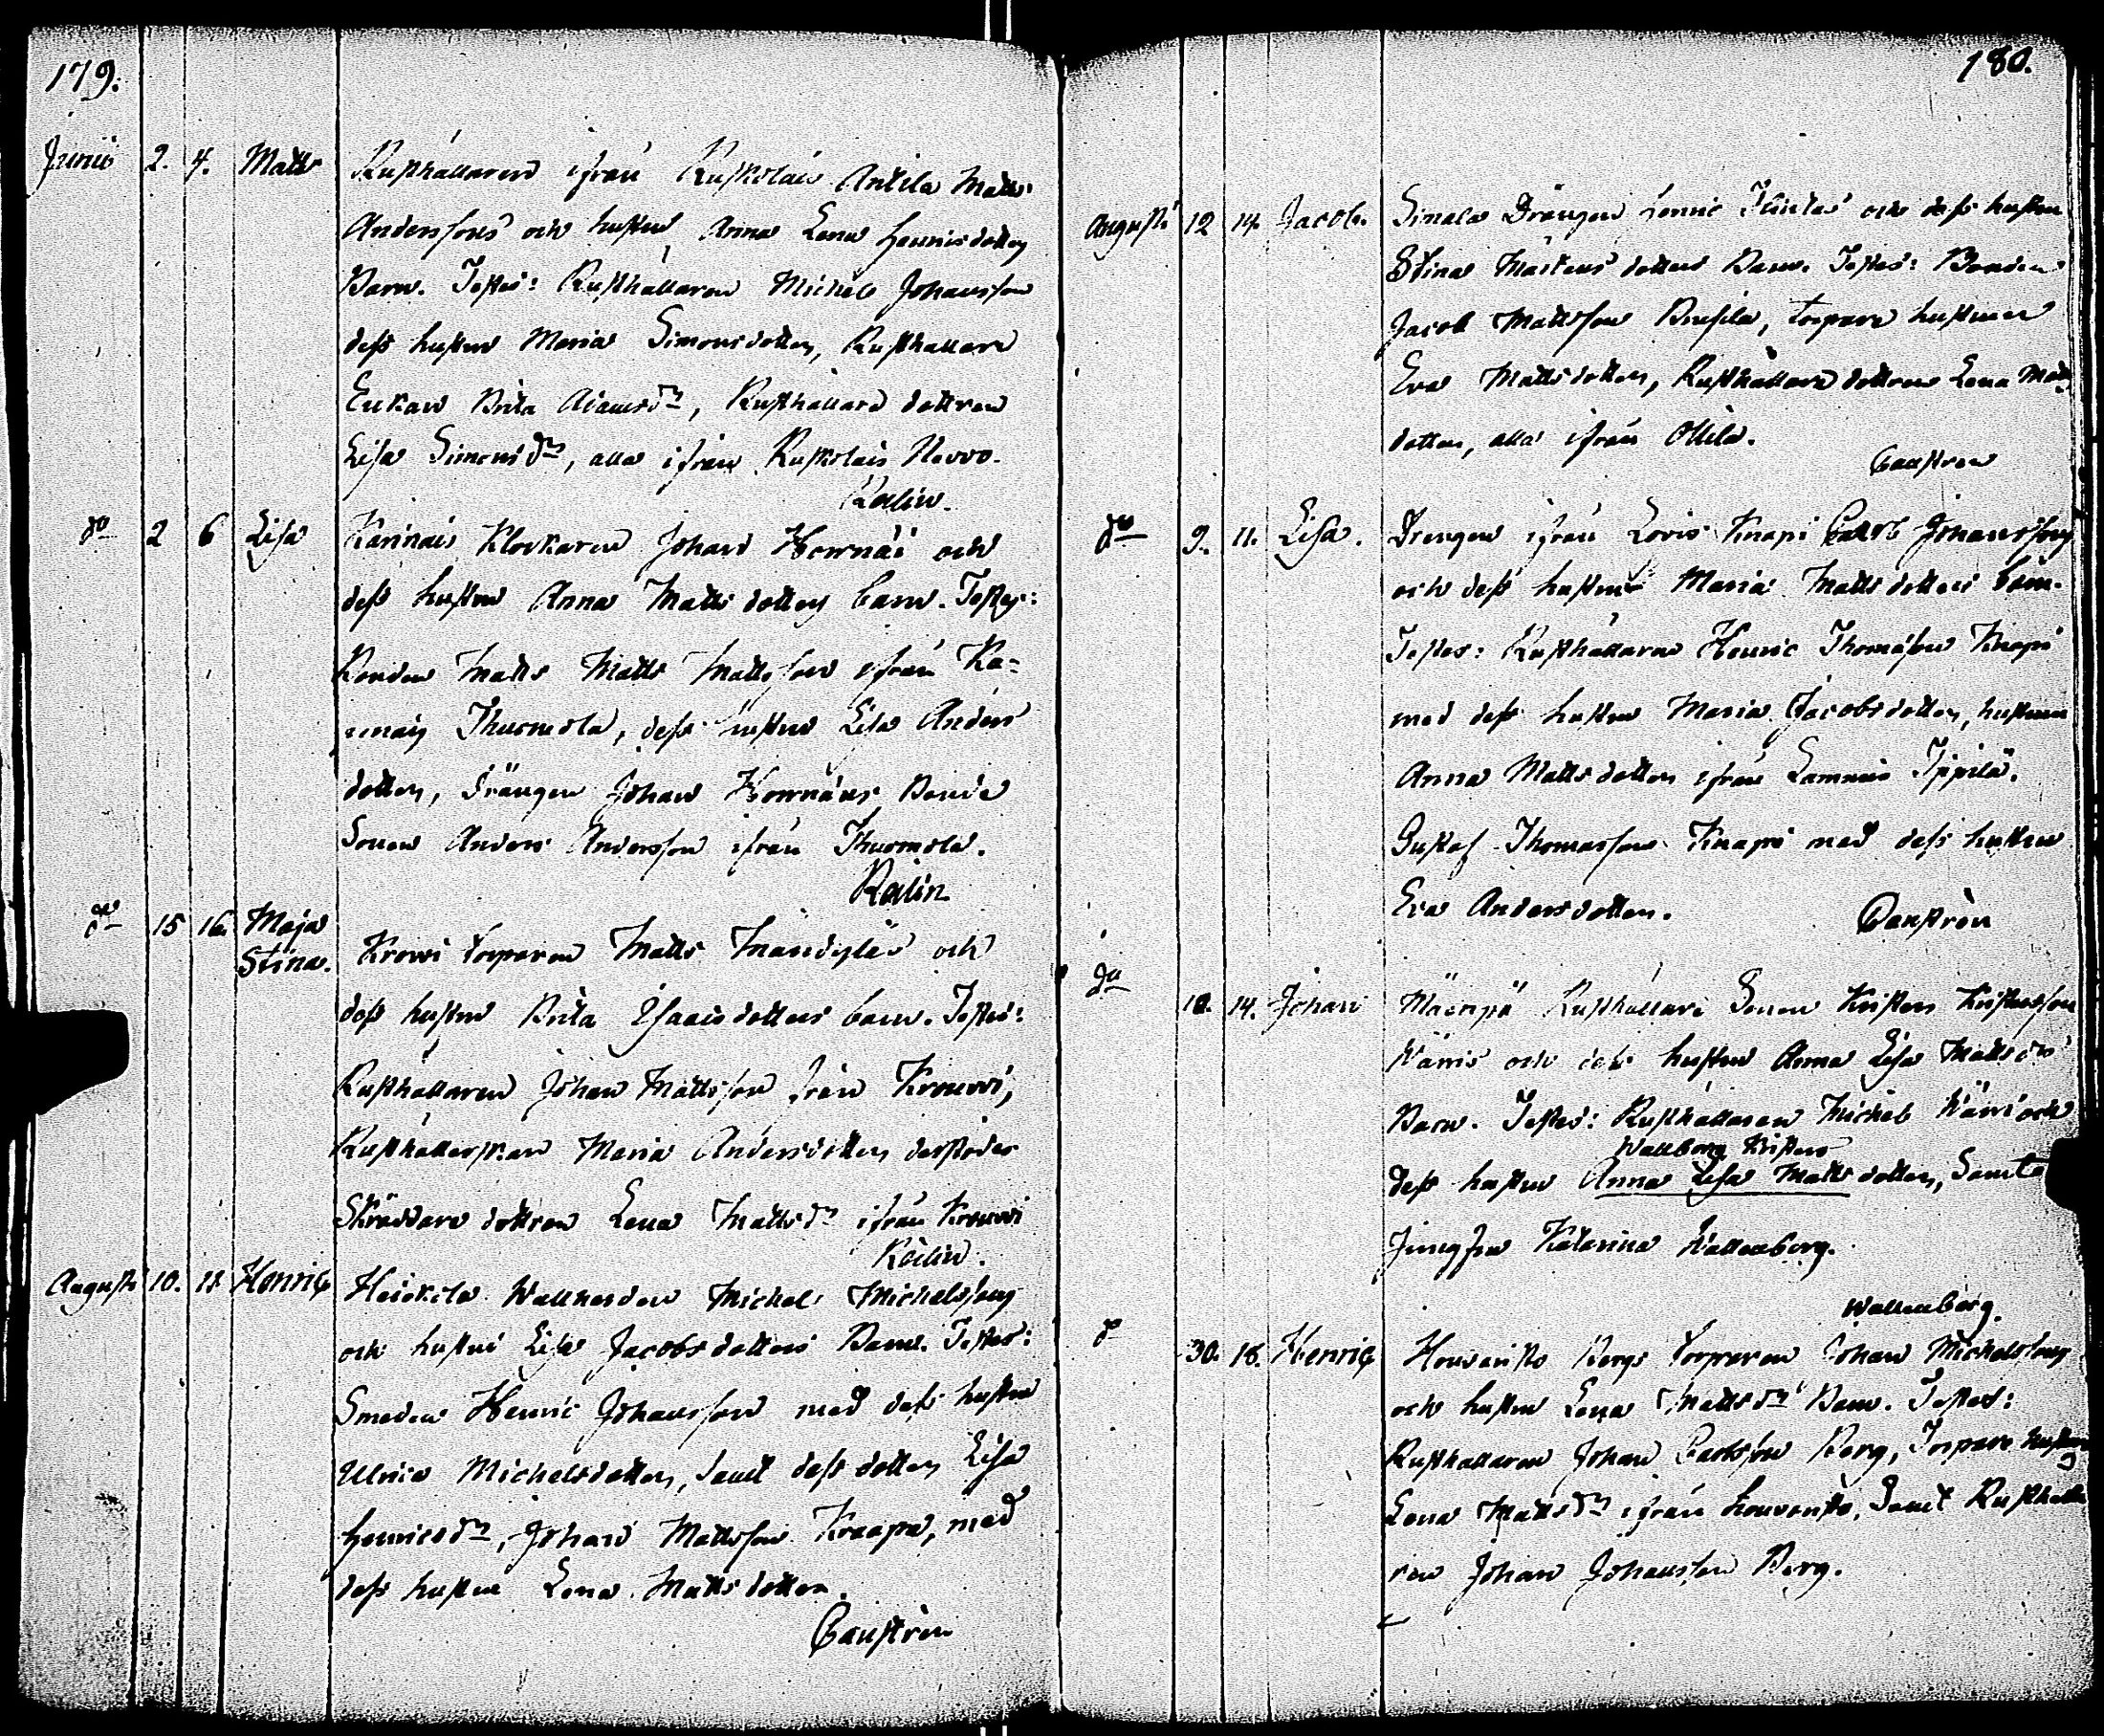 179.
Junii 2. 4. Matts Rusthållaren ifrån Ruskolais Anttila Matts
Anderssons och hustru Anna Lena Henricsdotters
Barn. Testes: Rusthållaren Michel Johansson
dess hustru Maria Simonsdotter, Rusthållare
Enkan Brita Adamsdr, Rusthållare dottren
Lisa Simonsdr, alla ifrån Ruskolais
Kalin.
do 2 6 Lisa Karinais Klockaren Johan Hornäi och
dess hustru Anna Matts dotters barn. Testes:
Bonden Matts Matts Mattsson ifrån Ka-
rinais Thuomola, dess hustru Lisa Anders
dotter, Drängen Johan Hornäus, Bonde
Sonen Anders Andersson ifrån Thuomola.
Kalin
do 15 16. Maja
Stina. Krowi torparen Matts och
dess hustru Brita Isaacsdotters barn. Testes:
Rusthållaren Johan Mattsson från Krouwi,
Rusthållerskan Maria Andersdotter derstädes
Skräddare dottren Lena Mattsdr ifrån Krouwi
Kalin.
Augusti 10. 11 Henric Heickola Michel Michelssons
och hustrus Lisa Jacobs dotters Barn. Testes:
Smeden Henric Johansson med dess hustru
Ulrica Michelsdotter, samt dess dotter Lisa
Henricsdr, Johan Mattsson Knaapi, med
dess hustru Lena Matts dotter.
Gaustrén
180.
Augusti 12 14. Jacob. Simala Drängen Henric och dess hustru
Stina Mårtens dotters Barn. Testes: Bonden
Jacob Mattsson Brusila, torpare hustrun
Eva Mattsdotter, Rusthållare dottren Lena Matts
dotter, alla ifrån Ollila.
Gaustren
do 9. 11. Lisa. Drengen ifrån Loris Knapi Carl Johanssons
och dess hustru Maria Matts dotters barn.
Testes: Rusthållaren Henric Thomasson Knapi
med dess hustru Maria Jacobsdotter, hustrun
Anna Matts dotter ifrån Lammais
Gustaf Thomasson Knapi med dess hustru
Eva Andersdotter.
Gaustrén
do
10. 14. Johan Mäenpä Rusthållare Sonen Kristers Kristersson
Wänni och dess hustru Anna Lisa Mattsdrs
Barn. Testes: Rusthållaren Michel Wänni och
Wallborg Kristers
dess hustru Anna Lisa Matts dotter, Samt
Jungfru Katarina Wallenberg.
Wallenberg.
do 30. 18. Henric Houvenisto Bergs torparen Johan Michelssons
och hustru Lena Mattsdrs Barn. Testes:
Rusthållaren Johan Carlsson Berg, Torpare hustrun
Lena Mattsdr ifrån Samt Rusthålla
ren Johan Johansson Berg.